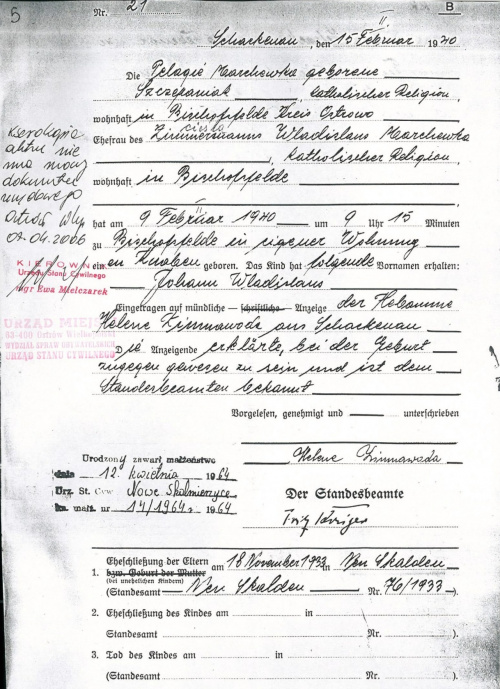 5
Nr. 21
II
B
Scharkenau, den 15 Februar 1940
Die Pelagie Marchewka geborene
Szczepaniak, katholischer Religion,
wohnhaft in Bischofsfelde Kreis Ostrowo
cieśla
Ehefrau des Zimmermanns Wladislaus Marchewka
, katholischer Religion,
wohnhaft in Bischofsfelde
hat am 9 Februar 1940 um 9 Uhr 15 Minuten
zu Bischofsfelde in eigener Wohnung
einen Knaben geboren. Das Kind hat folgende Vornamen erhalten:
Johann Wladislaus
Eingetragen auf mündliche – schriftliche – Anzeige der Hebamme
Helene Zimnawoda aus Scharkenau
Die Anzeigende erklärte, bei der Geburt
zugegen gewesen zu sein und ist dem
Standesbeamten bekannt
Vorgelesen, genehmigt und unterschrieben
Helene Zimnawoda
Der Standesbeamte
Fritz Krüger
kserokopia
aktu nie
ma mocy
dokumentu
urzędowego
Ostrów Wlkp
04.2006
KIEROWNIK
Urzędu Stanu Cywilnego
mgr Ewa Mielczarek
URZĄD MIEJSKI
63-400 Ostrów Wielkopolski
WYDZIAŁ SPRAW OBYWATELSKICH
URZĄD STANU CYWILNEGO
Urodzony zawarł małżeństwo
dnia 12. kwietnia 1964
Urz. St. Cyw Nowe Skalmierzyce
ks. małż. nr 14/1964 r 1964
1. Eheschließung der Eltern am 18 November 1933 in Neu Skalden
bzw. Geburt der Mutter
(bei unehelichen Kindern)
(Standesamt Neu Skalden Nr. 76/1933).
2. Eheschließung des Kindes am in
(Standesamt Nr. ).
3. Tod des Kindes am in
(Standesamt Nr. ).